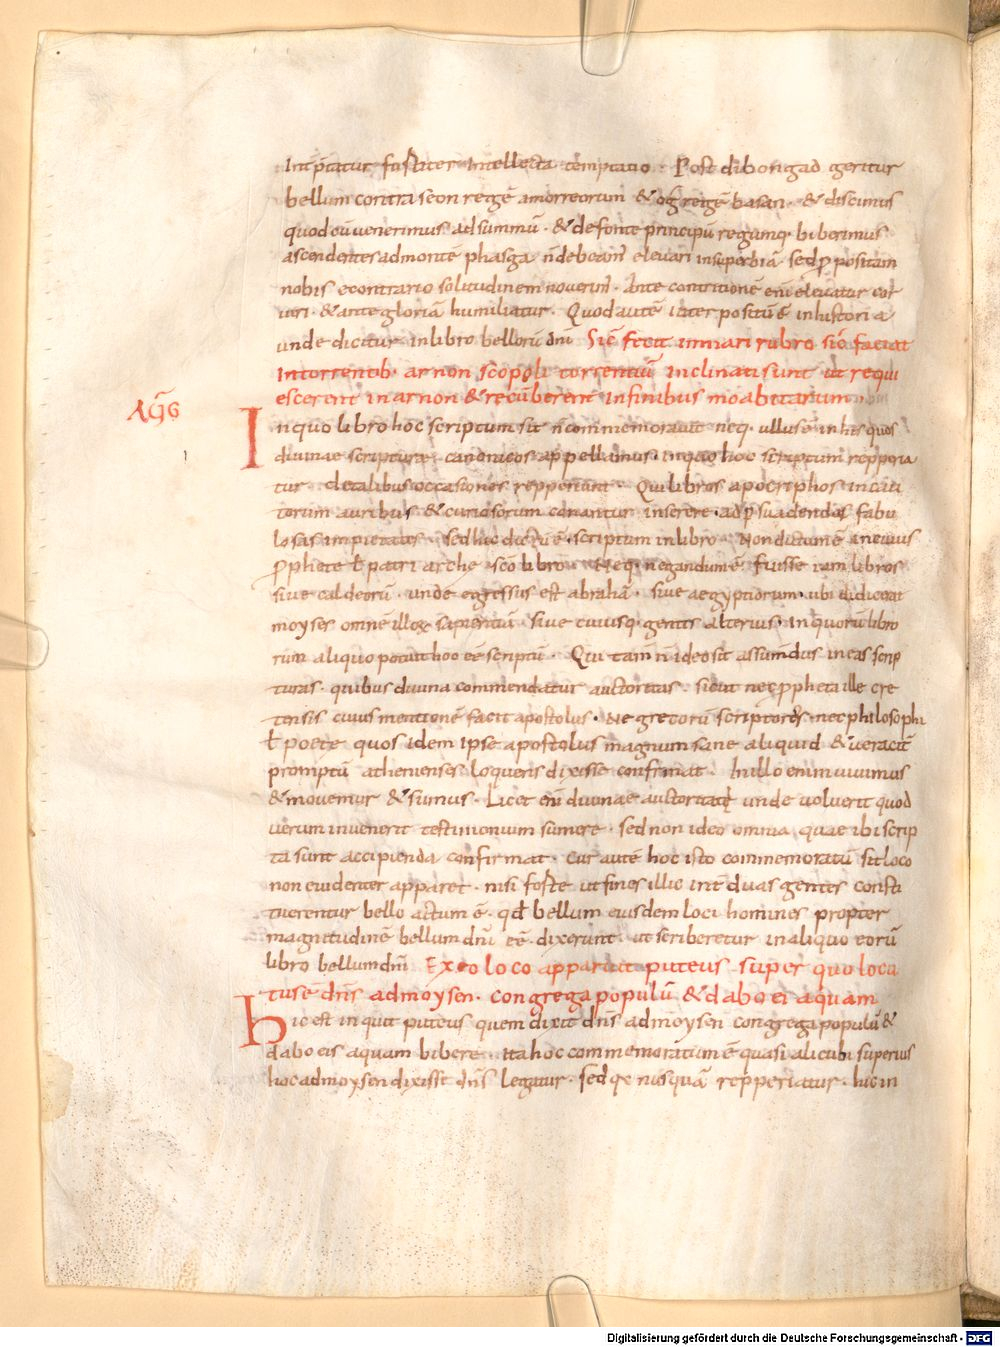 Intp̄tatur fortiter Intellecta temptatio. Post dibongad geritur
bellum contra seon regē amorreorum & og regē basan. & discimus
quod cū venerimus ad summū. & de fonte principū regumq. biberimus
ascendentes ad montē phasga n̄ debeam elevari in superbiā sed ꝓpositam
nobis econtrario solitudinem noverim. Ante contritionē eni elevatur cor
viri. & ante gloriā humiliatur. Quod autē interpositū ē in historia
unde dicitur in libro bellorū dni Sic fecit in mari rubro sic faciat
In torrentib. arnon scopoli torrentiū Inclinati sunt ut requi
escerent in arnon & recūberent in finibus moabitarum
AGG
In quo libro hoc scriptum sit n̄ commemoravit neq. ullus ē in his quos
divinae scripturae canonicos appellamus. in quo hoc scriptum repperia
tur. de talibus occasiones repperiunt. Qui libros apocriphos incau
torum auribus & curiosorum conantur inserere. ad p̄suadendas fabu
losas impietates. sed hic dictū ē. scriptum in libro. Non dictum ē in cuius
ꝓphete ƚ patriarche sc̄o libro. Neq. negandum ē fuisse iam libros
sive caldeorū. unde egressus est abrahā. sive aegyptiorum. ubi didicerat
moyses omnē illorꝝ sapientiā. sive cuiusq. gentis alterius. In quorū libro
rum aliquo potuit hoc eē scriptū. Qui tam n̄ ideo sit assumdus in eas scrip
turas. quibus divina commendatur auctoritas. sicut nec ꝓpheta ille cre
tensis cuius mentionē facit apostolus. Ne grecorū scriptores. nec philosophi
ƚ poete quos idem ipse apostolus magnum sane aliquid & veracit
promptū athenienses loqueris dixisse confirmat. In illo enim vivimus
& movemur & sumus. Licet eni divinae auctoritate unde voluerit quod
verum invenerit testimonium sumere. sed non ideo omnia quae ibi scrip
ta sunt accipienda confirmat. Cur autē hoc isto commemoratū sit loco
non evidenter apparet. nisi forte ut fines illic int duas gentes consti
tuerentur bello actum ē. qd̄ bellum eiusdem loci homines propter
magnitudinē bellum dni eē dixerunt. ut scriberetur in aliquo eorū
libro bellum dni Ex eo loco apparuit puteus super quo locu
tus ē dns ad moysen. congrega populū & dabo ei aquam
Hic est inquit puteus quem dixit dns ad moysen congrega populū &
dabo eis aquam bibere. ita hoc commemoratum ē quasi alicubi superius
hoc ad moysen dixisse dns legatur. sed qe nusquā repperiatur. hic in
Digitalisierung gefördert durch die Deutsche Forschungsgemeinschaft - DFG